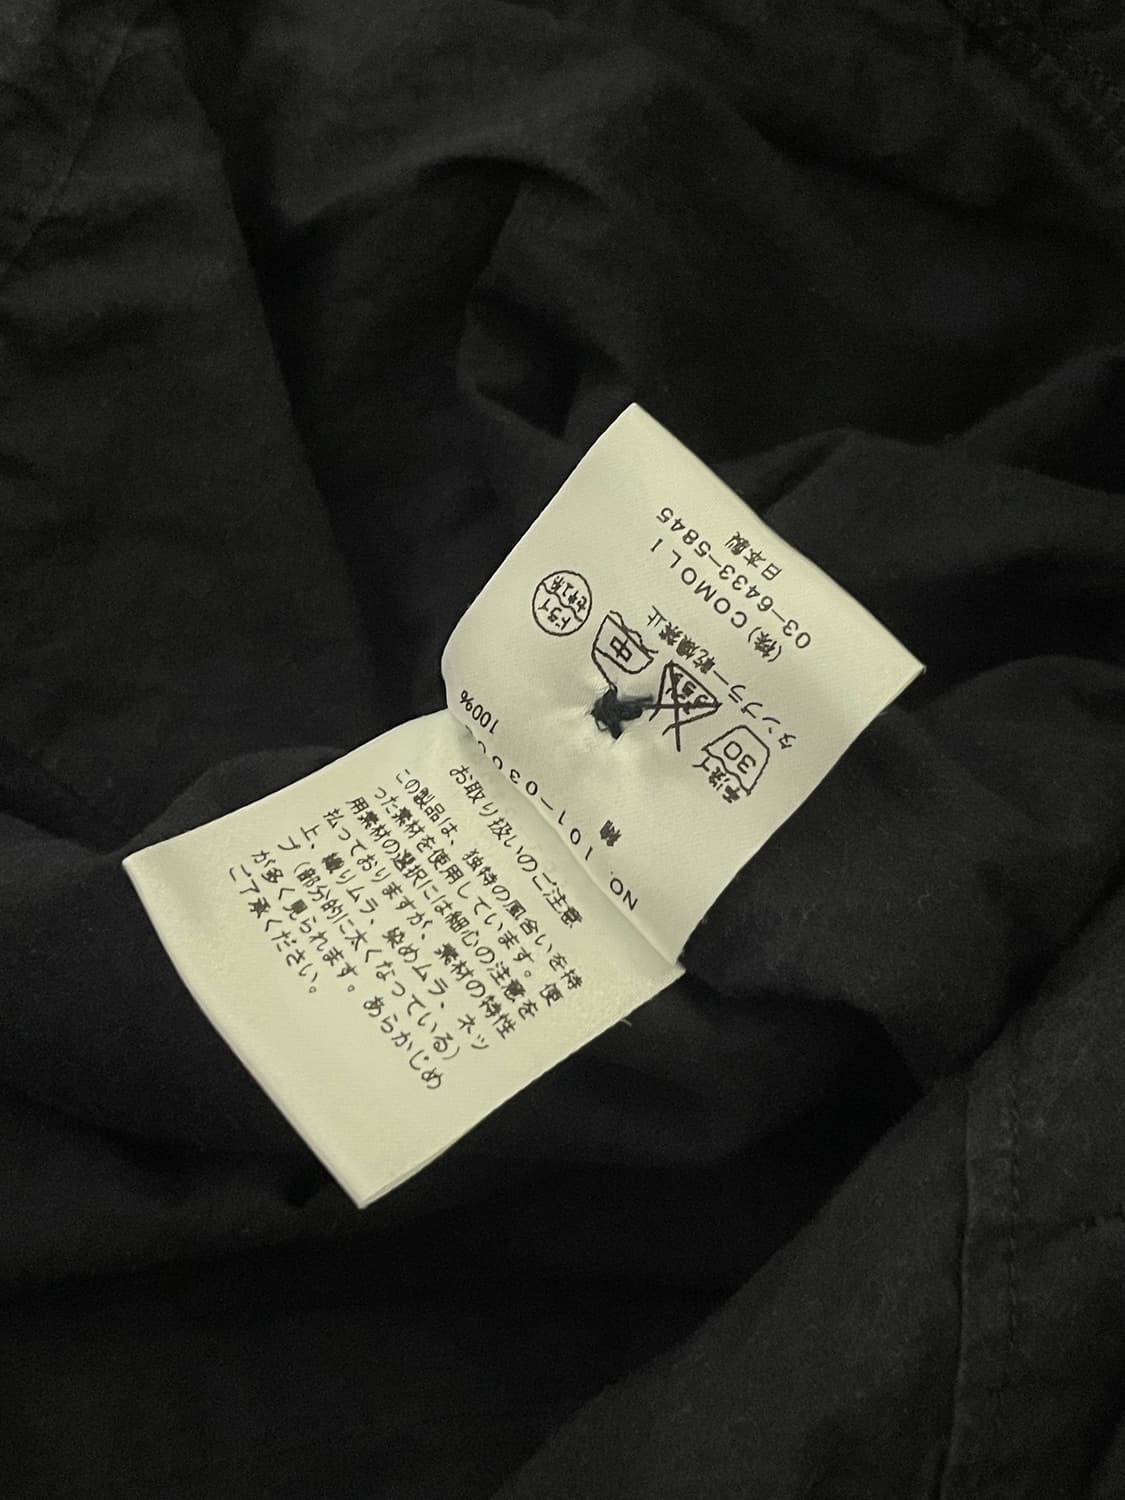 NO. 101-030
綿 100%
手洗イ 30
エンソサラシ
中
ドライ セキユ系
タンブラー乾燥禁止
(株)COMOLI
03-6433-5845
日本製
お取り扱いのご注意
この製品は、独特の風合いを持
った素材を使用しています。使
用素材の選択には細心の注意を
払っておりますが、素材の特性
上、織りムラ、染めムラ、ネッ
プ(部分的に太くなっている)
が多く見られます。あらかじめ
ご了承ください。